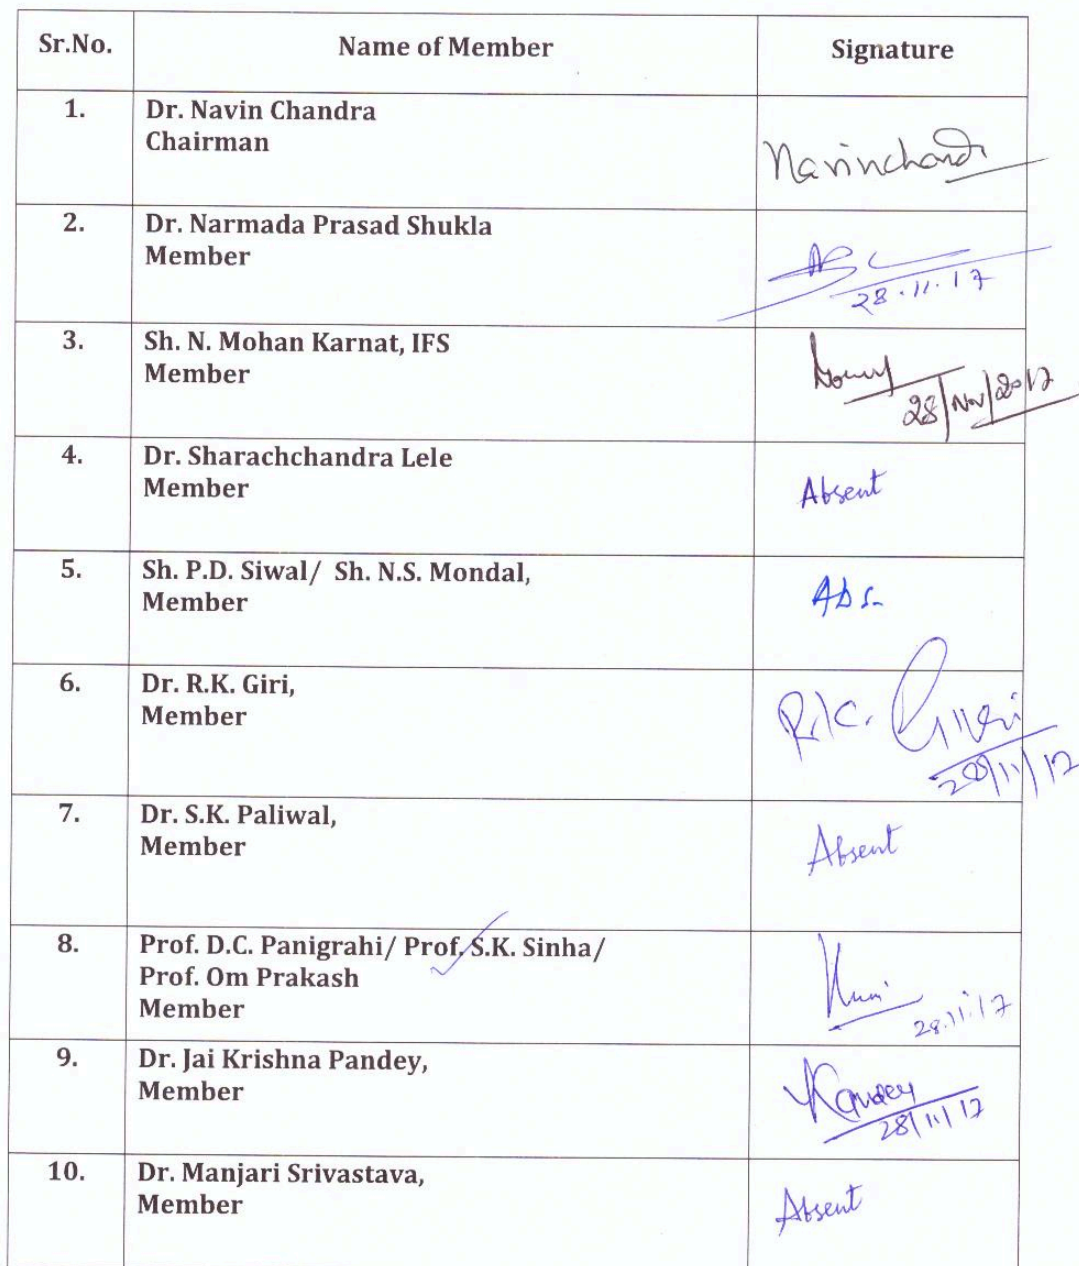 Sr.No. Name of Member Signature
1. Dr. Navin Chandra
Chairman
Navinchandr
2. Dr. Narmada Prasad Shukla
Member
28.11.17
3. Sh. N. Mohan Karnat, IFS
Member
28/Nov/2017
4. Dr. Sharachchandra Lele
Member
Absent
5. Sh. P.D. Siwal/ Sh. N.S. Mondal,
Member
Abs.
6. Dr. R.K. Giri,
Member
R.K. Giri
28/11/17
7. Dr. S.K. Paliwal,
Member
Absent
8. Prof. D.C. Panigrahi/ Prof. S.K. Sinha/
Prof. Om Prakash
Member
28.11.17
9. Dr. Jai Krishna Pandey,
Member
28/11/17
10. Dr. Manjari Srivastava,
Member
Absent